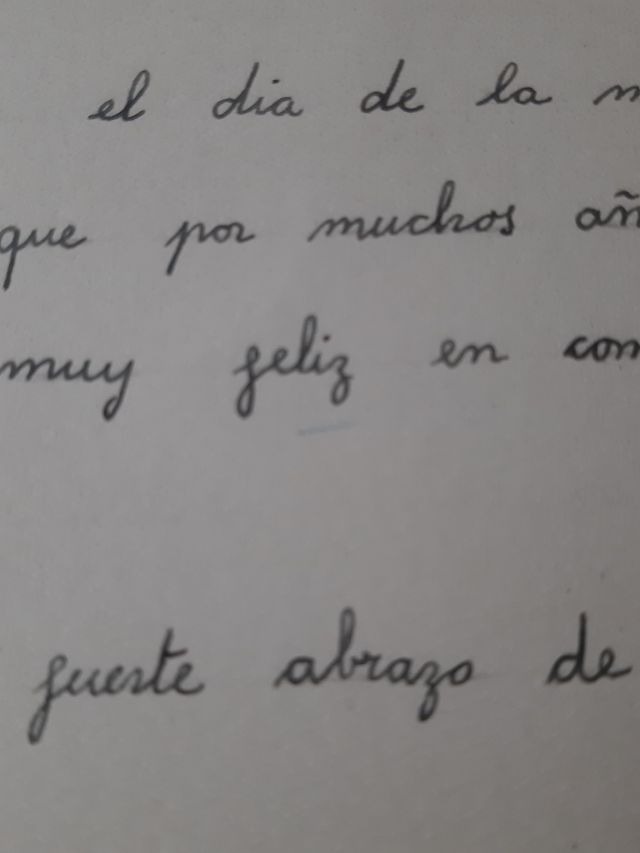 el dia de la m
que por muchos añ
muy feliz en com
fuerte abrazo de